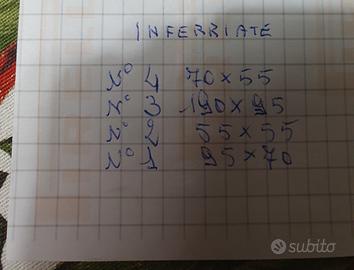 INFERRIATE
N° 4 70 x 55
N° 3 190 x 95
N° 2 55 x 55
N° 1 95 x 70
subito